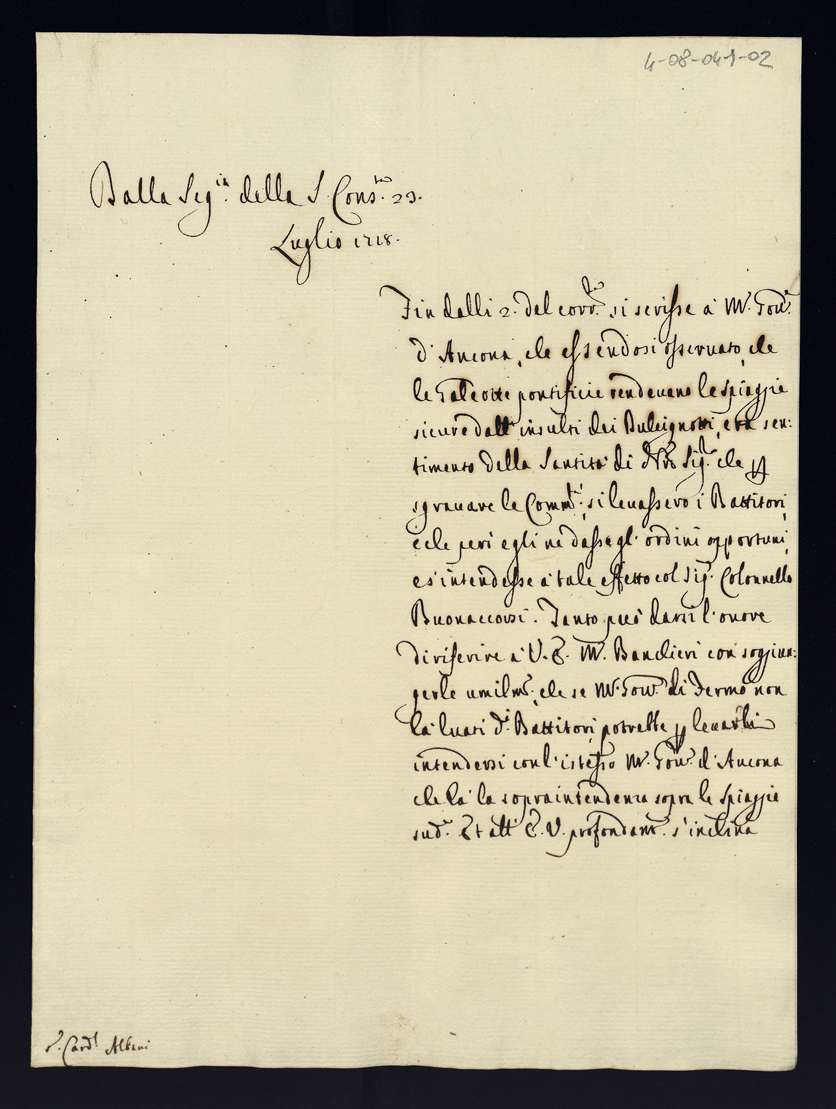 4-08-041-02
Dalla Seg.ria della S. Cons.ta 23.
Luglio 1718.
Fin dalli 2. del corr.te si scrisse à M.r Gov.re
d'Ancona, che essendosi osservato, che
le Galeotte pontificie rendevano le spiaggie
sicure dall'insulti dei Dulcignotti, era sen:
timento della Santità di N.ro Sig.re che p
sgravare le Comm.tà, si levassero i Battitori,
e che però egli ne dasse gl'ordini opportuni,
e s'intendesse à tale effetto col Sig.r Colonnello
Buonaccorsi. Tanto può darsi l'onore
di riferire à V. E. M. Banchieri con soggiun:
gerle umilm.e, che se M.r Gov.re di Fermo non
hà levati d.i Battitori, potrebbe p levarli
intendersi con l'istesso M.r Gov.re d'Ancona
che hà la sopraintendenza sopra le spiaggie
sud.e Et all'E. V. profondam.e s'inclina
S.r Card.l Albani